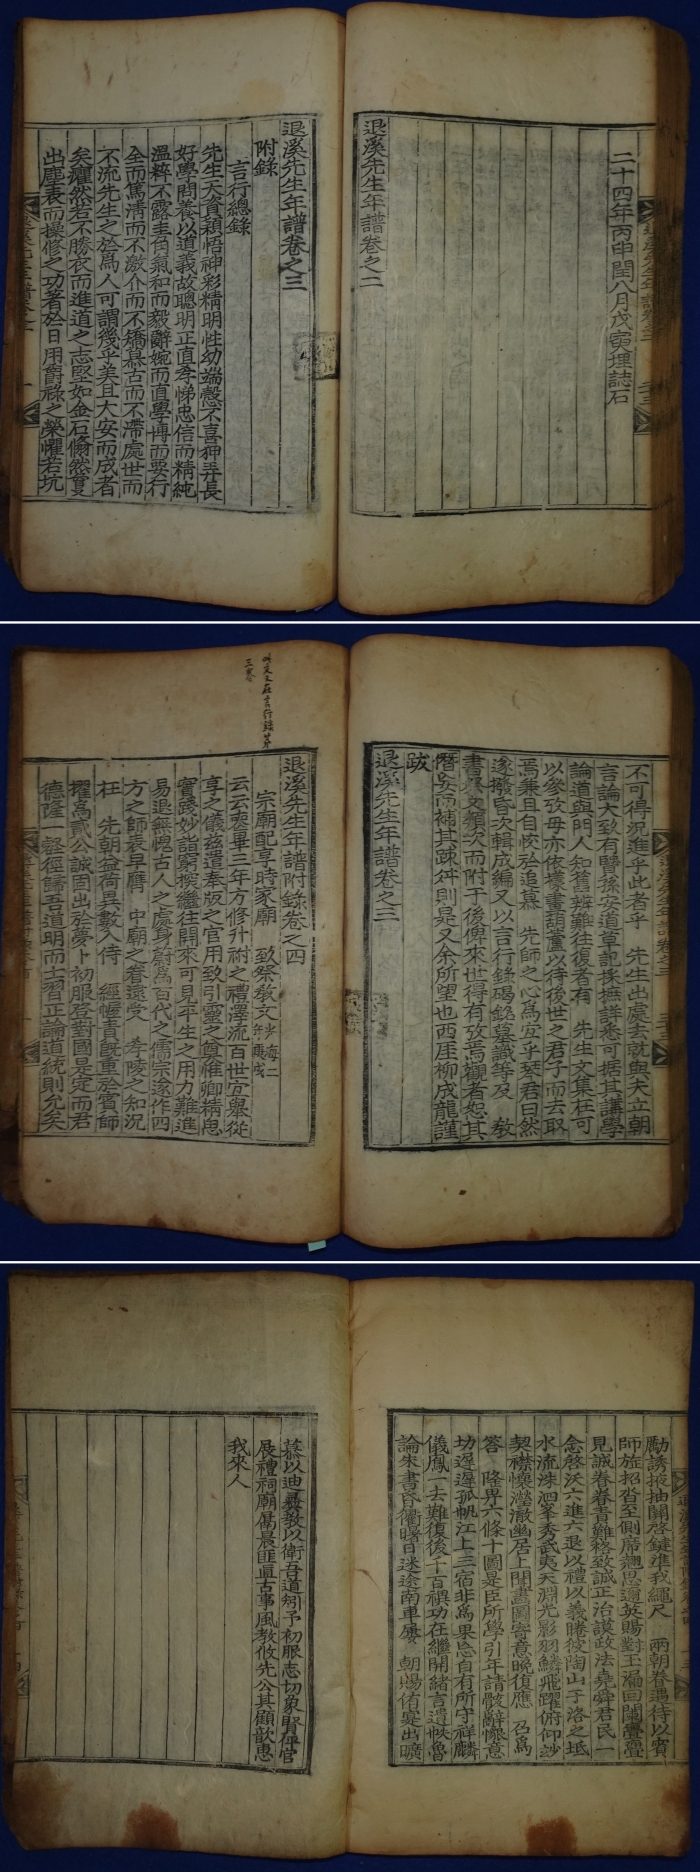 二十四年丙申閏八月戊寅埋誌石
退溪先生年譜卷之二
退溪先生年譜卷之三
附錄
言行總錄
先生天資穎悟神彩精明性幼端慤不喜狎弄長
好學問養以道義故聰明正直孝悌忠信而精純
溫粹不露圭角氣和而毅辭婉而直學博而要行
全而篤清而不激介而不矯慕古而不滯處世而
不流先生之於爲人可謂幾乎美且大安而成者
矣癯然若不勝衣而進道之志堅如金石翛然
出塵表而操修之功著於日用爵祿之榮懼若坑
不可得況進乎此者乎 先生出處去就與夫立朝
言論大致有賢孫安道草記摭詳悉可據其講學
論道與門人知舊辨難往復者有 先生文集在可
以參攷毋亦依㨾畫葫蘆以待後世之君子而去取
焉兼且自恔於追慕 先師之心爲安乎琹君曰然
遂撥昏次輯成編又以言行錄碣銘墓識等及 教
書祭文類次而附于後俾來世得有攷焉觀者恕其
僭妄而補其疎舛則是又余所望也西厓柳成龍謹
跋
退溪先生年譜卷之三
退溪先生年譜附錄卷之四
宗廟配享時家廟 致祭教文
云云喪畢三年方修升祔之禮澤流百世宜舉從
享之儀茲遣奉版之官用致引靈之奠惟卿精思
實踐妙詣窮探繼往開來可見平生之用力難進
易退無愧古人之處身蔚爲百代之儒宗遂作四
方之師表早膺 中廟之眷遠受 孝陵之知況
在 先朝益荷異數入侍 經幄責旣重於賓師
擢爲貳公誠固出於夢卜初服登對國是定而君
德隆一壑徑歸吾道明而士習正論道統則允矣
勵誘掖抽關啓鍵準我繩尺 兩朝眷遇待以賓
師旌招沓至側席翹思邇英賜對玉漏回闌亹亹
見誠眷眷責難格致誠正治謨政法堯舜君民一
念啓沃六進六退以禮以義睠彼陶山于洛之坻
水流洙泗峯秀武夷天淵光影羽鱗飛躍俯仰玅
契襟懷瀅澈幽居上聞畫圖寄意晩復應 召爲
答 隆畀六條十圖是臣所學引年請骸辭懇意
切遲遲孤帆江上三宿非爲果忘自有所守祥麟
儀鳳一去難復後千百禩功在繼開緖言遺帙魯
論朱書昏衢曙日迷途南車屢 朝賜侑寔出曠
慕以迪彛教以衛吾道矧予初服志切象賢伻官
展禮祠廟儩晨匪直古事風敎攸先公其顧歆惠
我來人